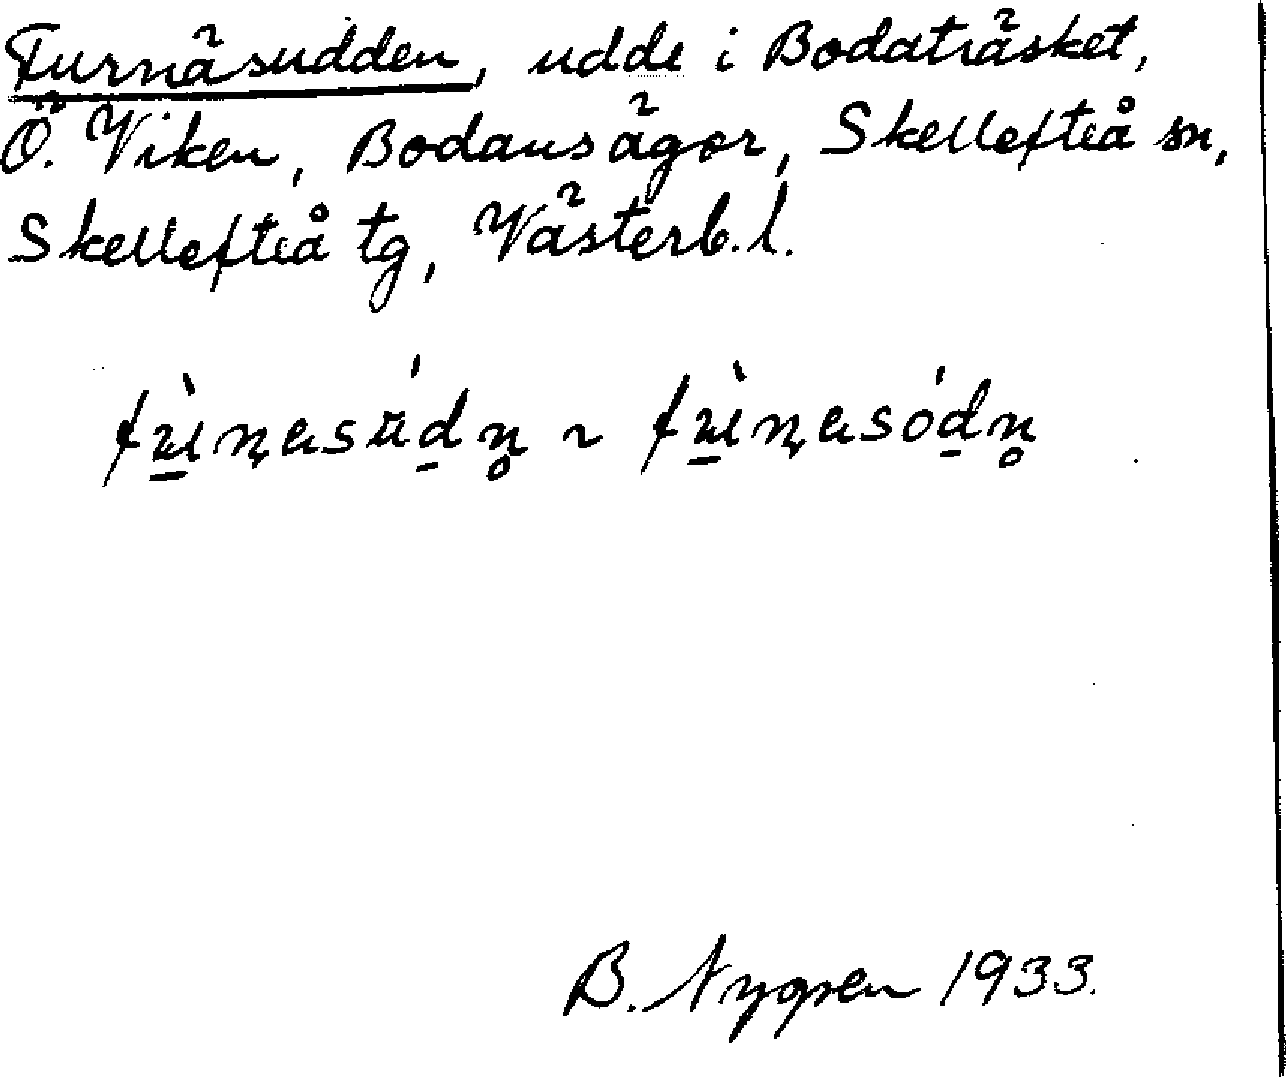 Furnäsudden, udde i Bodaträsket,
Ö. Viken, Bodans ägor, Skellefteå sn,
Skellefteå tg, Västerb. l.
B. Nygren 1933.